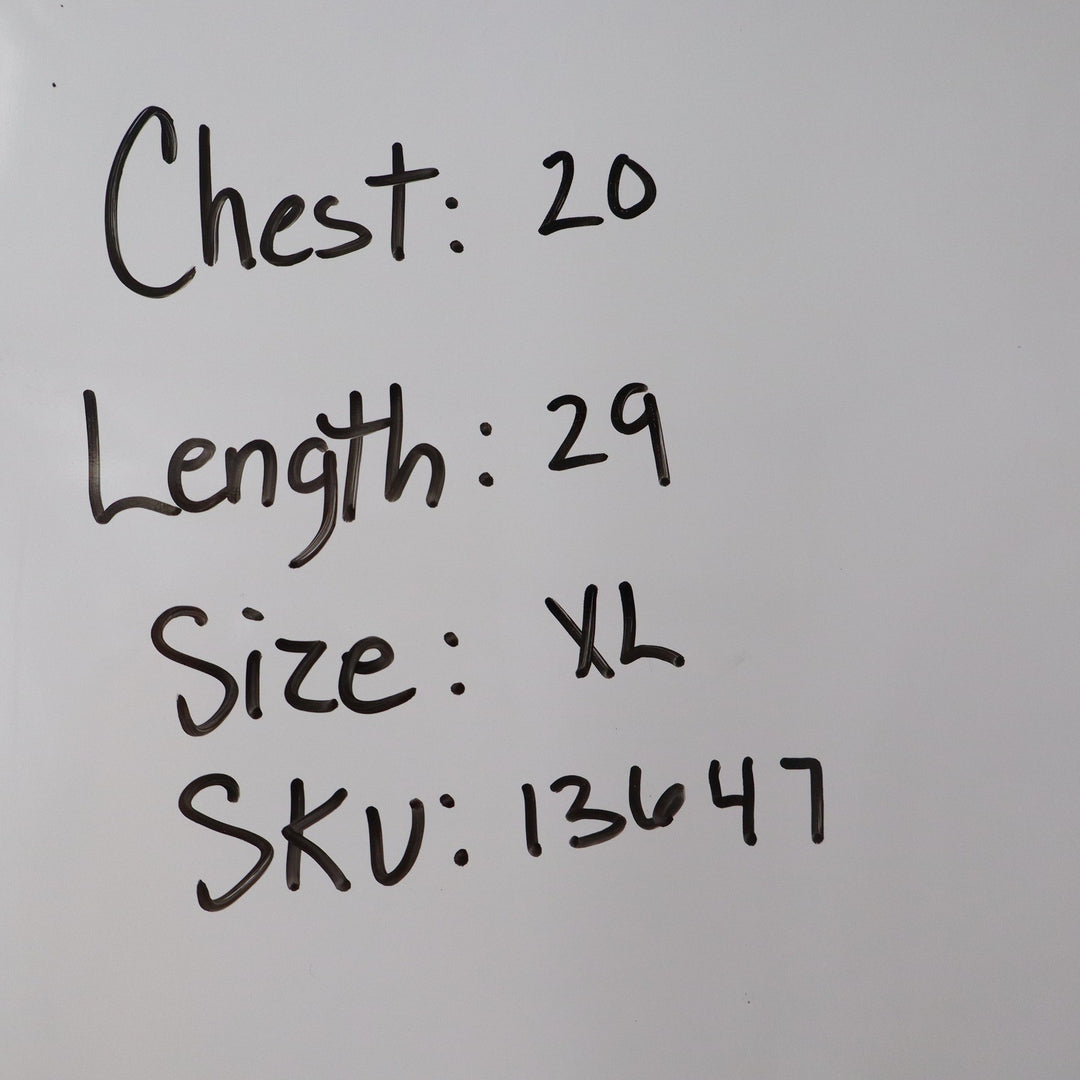 Chest: 20
Length: 29
Size: XL
SKU: 13647